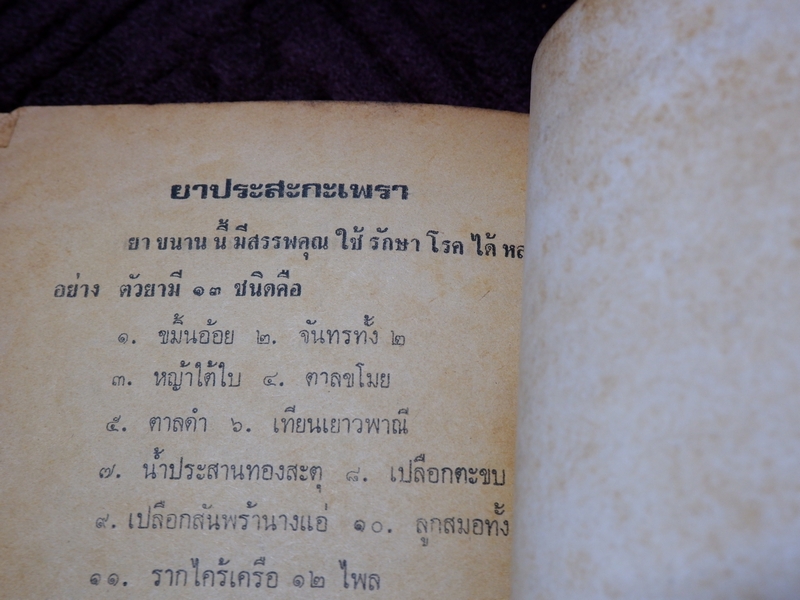 ยาประสะกะเพรา
ยา ขนาน นี้ มีสรรพคุณ ใช้ รักษา โรค ได้
อย่าง ตัวยามี ๑๓ ชนิดคือ
๑. ขมิ้นอ้อย ๒. จันทรทั้ง ๒
๓. หญ้าใต้ใบ ๔. ตาลขโมย
๕. ตาลดำ ๖. เทียนเยาวพาณี
๗. น้ำประสานทองสะตุ ๘. เปลือกตะขบ
๙. เปลือกสันพร้านางแอ่ ๑๐. ลูกสมอทั้ง
๑๑. รากไคร้เครือ ๑๒ ไพล